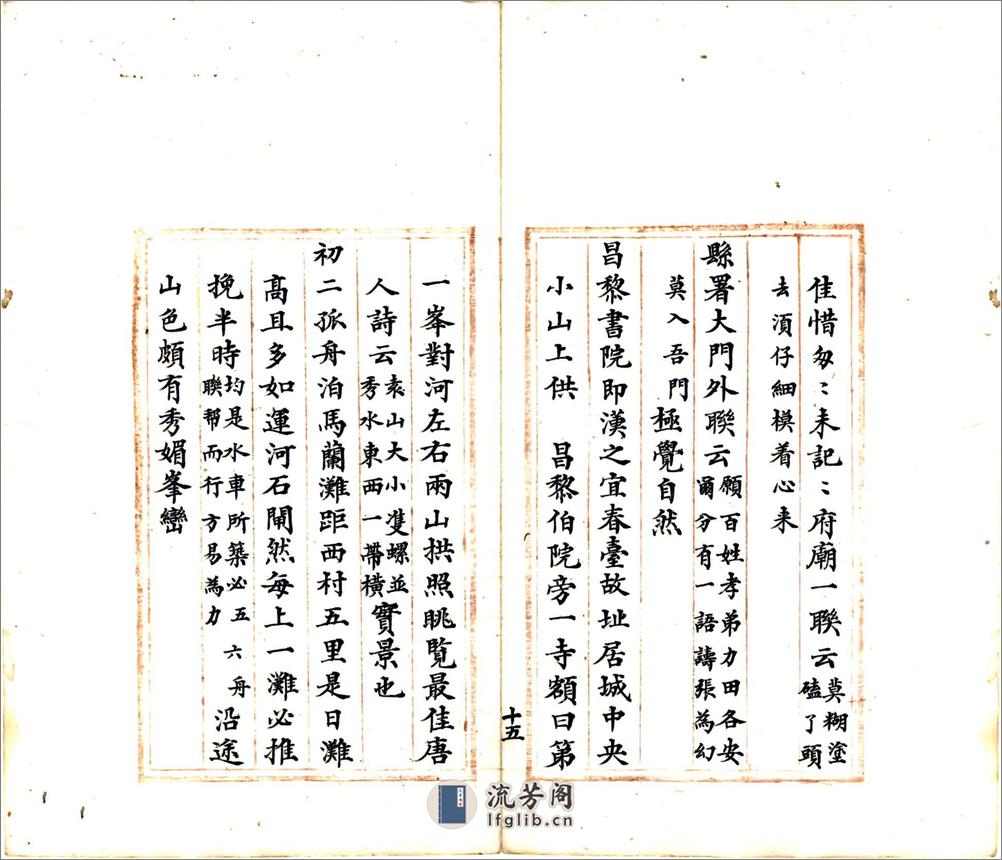 佳惜匆〻未記〻府廟一聯云莫糊塗磕了頭
去湏仔細摸着心来
縣署大門外聯云願百姓孝弟力田各安爾分有一語譸張為幻
莫入吾門極覺自然
昌黎書院即漢之宜春臺故址居城中央
小山上供　昌黎伯院旁一寺額曰第
十五
一峯對河左右兩山拱照眺覧最佳唐
人詩云袁山大小雙螺並秀水東西一帶横實景也
初二孤舟泊馬蘭灘距西村五里是日灘
高且多如運河石閘然每上一灘必推
挽半時均是水車所築必五六舟聯帮而行方易為力沿途
山色頗有秀媚峯巒
流芳阁
lfglib.cn